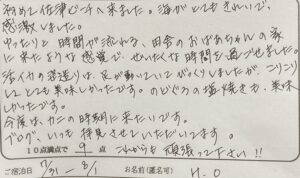 初めて佐津ビーチへ来ました。海がとてもきれいで、
感激しました。
ゆったりと時間が流れる、田舎のおばあちゃんの家
に来たような感覚で、ぜいたくな時間を過ごせました。
活イカの姿造りは、足が動いていてびっくりしましたが、こりこり
しとても美味しかったです。のどぐろの塩焼きも、美味
しかったです。
今度は、カニの時期に来たいです。
ブログ、いつも拝見させていただいてます。
10点満点で 9 点 これからも頑張って下さい!!
ご宿泊日 7/31 ~ 8/1 お名前(匿名可) H.O